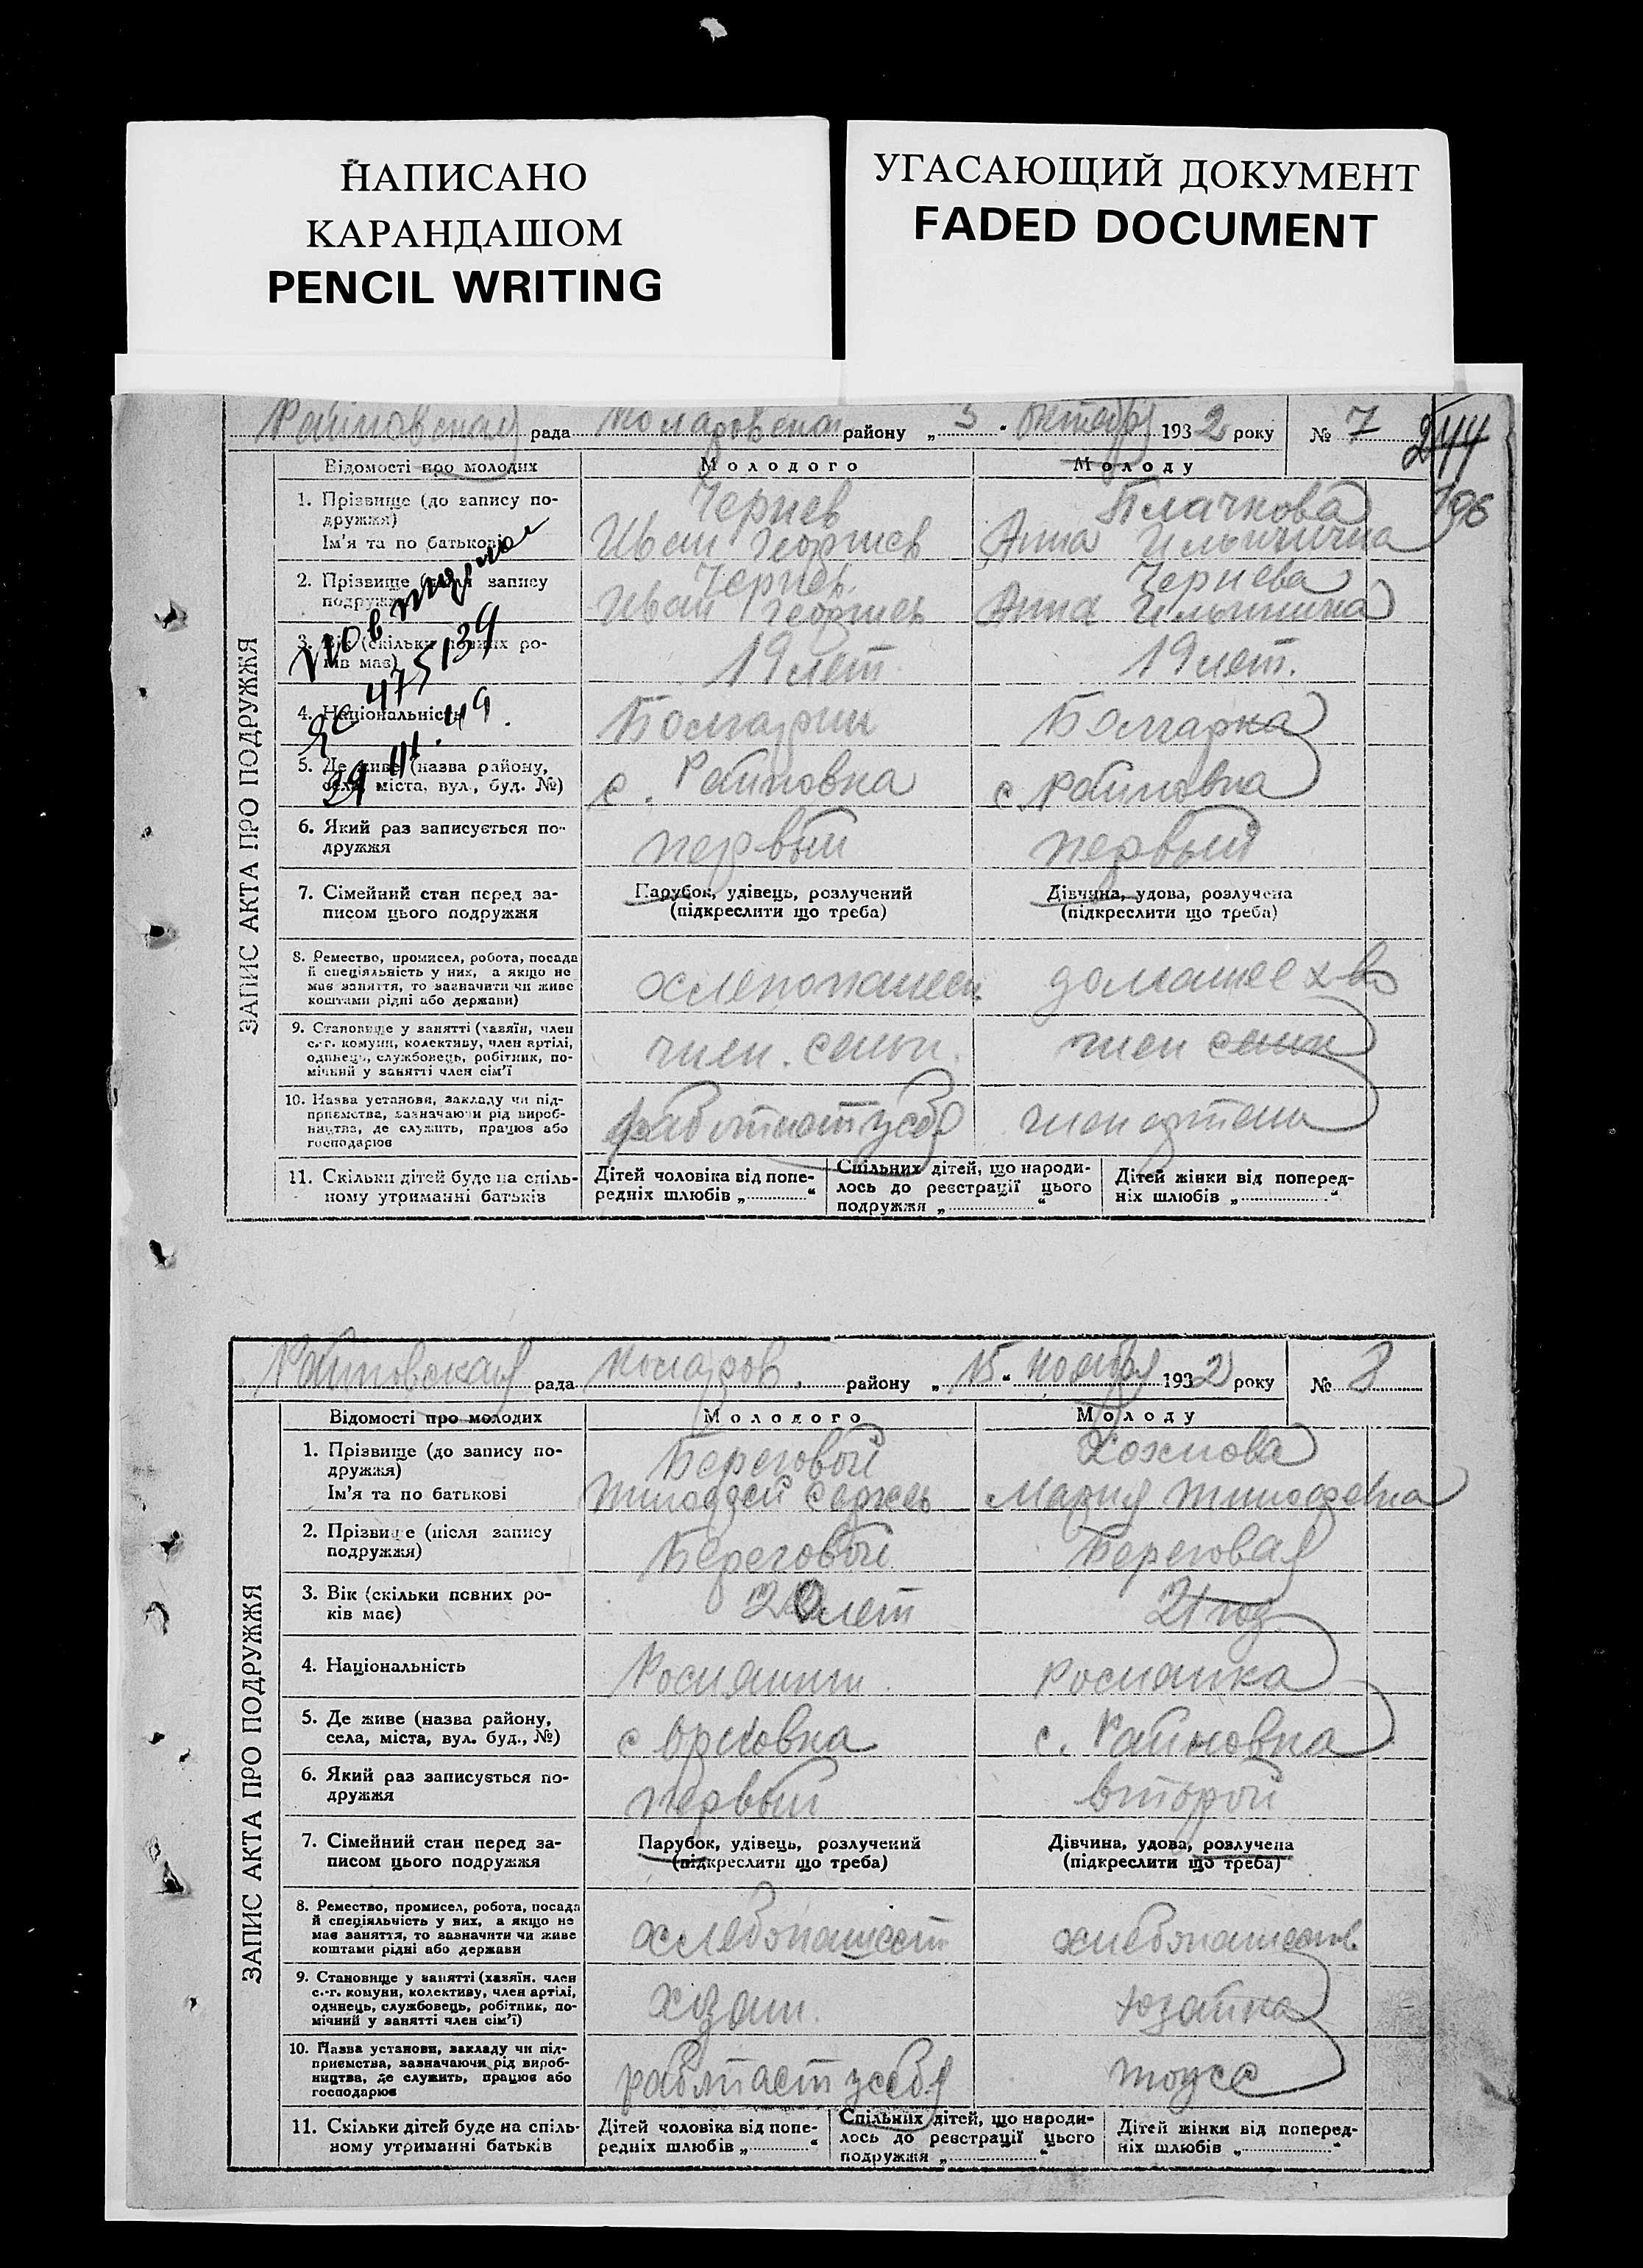 НАПИСАНО
КАРАНДАШОМ
PENCIL WRITING
УГАСАЮЩИЙ ДОКУМЕНТ
FADED DOCUMENT
Райновская рада району „ 3 " октября 1932 року № 7
244
196
ЗАПИС АКТА ПРО ПОДРУЖЖЯ
Відомості про молодих Молодого Молоду
1. Прізвище (до запису по-
дружжя)
Ім'я та по батькові
Чернев
Иван Георгиев
Плачкова
Анна Ильинична
2. Прізвище (після запису
подружжя)
Чернев
Иван Георгиев
Чернева
Анна Ильинична
3. Вік (скільки повних ро-
ків має)
19 лет
19 лет.
4. Національність
Болгарин
Болгарка
5. Де живе (назва району,
села, міста, вул., буд. №)
с. Райновка
с. Райновка
6. Який раз записується по-
дружжя
первый
первый
7. Сімейний стан перед за-
писом цього подружжя
Парубок, удівець, розлучений
(підкреслити що треба)
Дівчина, удова, розлучена
(підкреслити що треба)
8. Ремество, промисел, робота, посада
й спеціяльність у них, а якщо не
має заняття, то зазначити чи живе
коштами рідні або держави)
домашнее х-во
9. Становище у занятті (хазяїн, член
с.-г. комуни, колективу, член артілі,
одинець, службовець, робітник, по-
мічний у занятті член сім'ї
член. семьи.
член семьи
10. Назва установи, закладу чи під-
приємства, зазначаючи рід вироб-
ництва, де служить, працює або
господарює
работает у себя
член артели
11. Скільки дітей буде на спіль-
ному утриманні батьків
Дітей чоловіка від попе-
редніх шлюбів „ "
Спільних дітей, що народи-
лось до реєстрації цього
подружжя „ "
Дітей жінки від поперед-
ніх шлюбів „ "
Райновская рада району „ 15 " ноября 1932 року № 8
ЗАПИС АКТА ПРО ПОДРУЖЖЯ
Відомості про молодих Молодого Молоду
1. Прізвище (до запису по-
дружжя)
Ім'я та по батькові
Береговой
Тимофей Сергеев
Мария Тимофеевна
2. Прізвище (після запису
подружжя)
Береговой
Береговая
3. Вік (скільки повних ро-
ків має)
20 лет
21 год
4. Національність
Росиянин.
росиянка
5. Де живе (назва району,
села, міста, вул. буд., №)
с Орловка
с. Райновка
6. Який раз записується по-
дружжя
первый
второй
7. Сімейний стан перед за-
писом цього подружжя
Парубок, удівець, розлучений
(підкреслити що треба)
Дівчина, удова, розлучена
(підкреслити що треба)
8. Ремество, промисел, робота, посада
й спеціяльність у них, а якщо не
має заняття, то зазначити чи живе
коштами рідні або держави
хлебопашест
хлебопашеств.
9. Становище у занятті (хазяїн. член
с.-г. комуни, колективу, член артілі,
одинець, службовець, робітник, по-
мічний у занятті член сім'ї)
10. Назва установи, закладу чи під-
приємства, зазначаючи рід вироб-
ництва, де служить, працює або
господарює
работает у себя
11. Скільки дітей буде на спіль-
ному утриманні батьків
Дітей чоловіка від попе-
редніх шлюбів „ "
Спільних дітей, що народи-
лось до реєстрації цього
подружжя „ "
Дітей жінки від поперед-
ніх шлюбів „ "